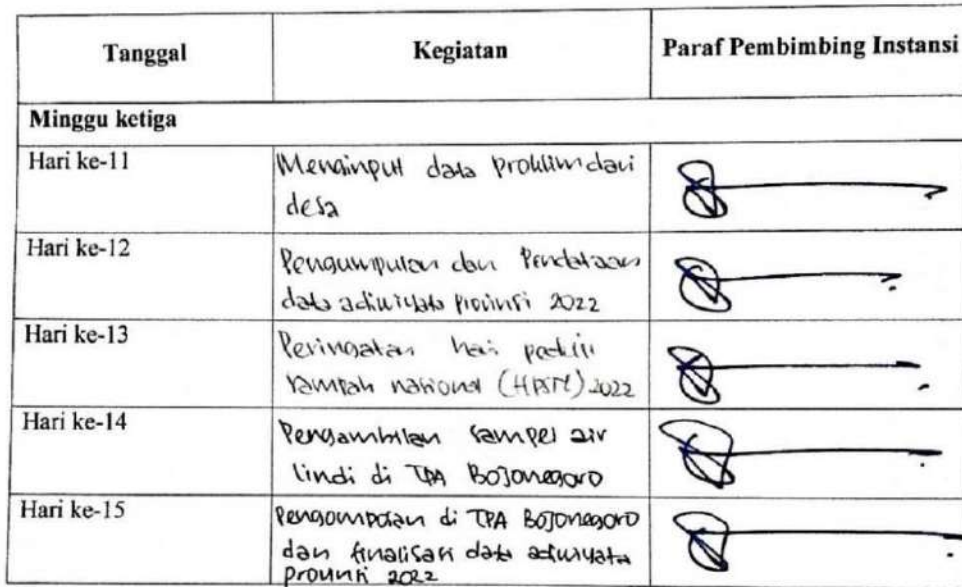 Tanggal
Kegiatan
Paraf Pembimbing Instansi
Minggu ketiga
Hari ke-11
Menginput data proklim dari
desa
Hari ke-12
Pengumpulan dan Pendataan
data adiwiyata provinsi 2022
Hari ke-13
Peringatan hari peduli
sampah nasional (HPSN) 2022
Hari ke-14
Pengambilan sampel air
lindi di TPA Bojonegoro
Hari ke-15
di TPA Bojonegoro
dan finalisasi data adiwiyata
provinsi 2022